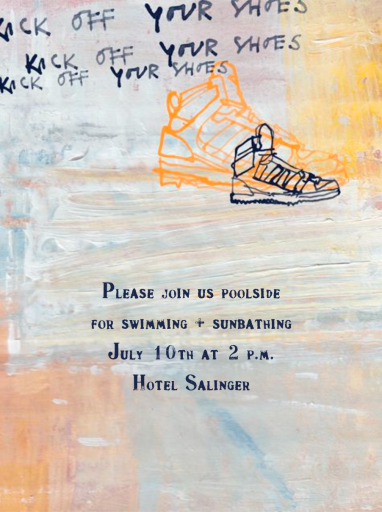 KICK OFF YOUR SHOES
KICK OFF YOUR SHOES
KICK OFF YOUR SHOES
Please join us poolside
for swimming + sunbathing
July 10th at 2 p.m.
Hotel Salinger